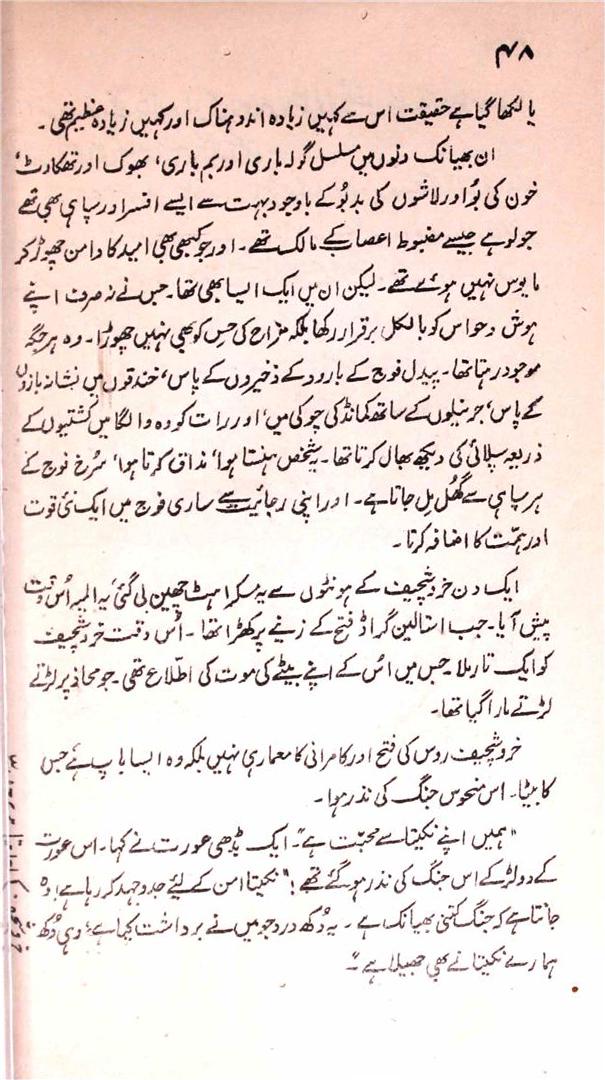 ۴۸
یا لکھا گیا ہے حقیقت اس سے کہیں زیادہ اندوہناک اور کہیں زیادہ عظیم تھی۔
ان بھیانک دنوں میں مسلسل گولہ باری اور بم باری، بھوک اور تھکاوٹ،
خون کی بُو اور لاشوں کی بدبُو کے باوجود بہت سے ایسے افسر اور سپاہی بھی تھے
جو لوہے جیسے مضبوط اعصاب کے مالک تھے۔ اور جو کبھی بھی امید کا دامن چھوڑ کر
مایوس نہیں ہوئے تھے۔ لیکن ان میں ایک ایسا بھی تھا۔ جس نے نہ صرف اپنے
ہوش و حواس کو بالکل برقرار رکھا بلکہ مزاح کی حِس کو بھی نہیں چھوڑا۔ وہ ہر جگہ
موجود رہتا تھا۔ پیدل فوج کے بارود کے ذخیروں کے پاس، خندقوں میں نشانہ بازوں
کے پاس، جرنیلوں کے ساتھ کمانڈ کی چوکی میں، اور رات کو وہ والگا میں کشتیوں کے
ذریعہ سپلائی کی دیکھ بھال کرتا تھا۔ یہ شخص ہنستا ہوا، مذاق کرتا ہوا، سُرخ فوج کے
ہر سپاہی سے گھُل مِل جاتا ہے۔ اور اپنی رجائیت سے ساری فوج میں ایک نئی قوت
اور ہمّت کا اضافہ کرتا۔
ایک دن خروشچیف کے ہونٹوں سے یہ مسکراہٹ چھین لی گئی، یہ المیہ اُس وقت
پیش آیا۔ جب استالین گراڈ فتح کے زینے پر کھڑا تھا۔ اُس وقت خروشچیف
کو ایک تار ملا۔ جس میں اس کے اپنے بیٹے کی موت کی اطّلاع تھی۔ جو محاذ پر لڑتے
لڑتے مارا گیا تھا۔
خروشچیف روس کی فتح اور کامرانی کا معمار ہی نہیں بلکہ وہ ایسا باپ ہے جس
کا بیٹا۔ اس منحوس جنگ کی نذر ہوا۔
"ہمیں اپنے نکیتا سے محبّت ہے"۔ ایک بڈھی عورت نے کہا۔ اس عورت
کے دو لڑکے اس جنگ کی نذر ہو گئے تھے! "نکیتا امن کے لئے جدوجہد کر رہا ہے! وہ
جانتا ہے کہ جنگ کتنی بھیانک ہے۔ یہ دُکھ درد جو میں نے برداشت کیا ہے، وہی دُکھ
ہمارے نکیتا نے بھی جھیلا ہے"۔